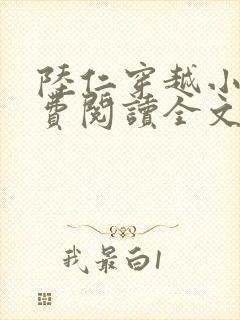 陸仁穿越小
費閱讀全文
我最白1